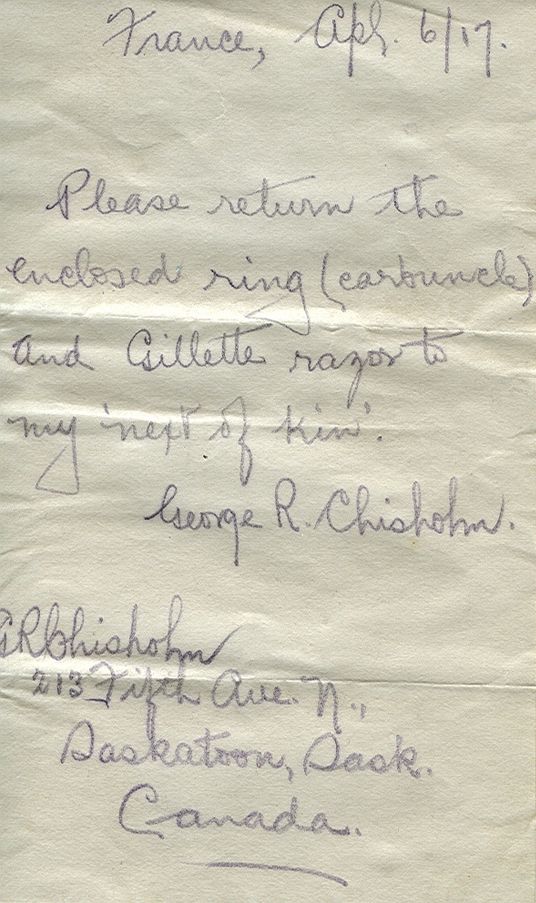 France, Apl. 6/17.
Please return the
enclosed ring (carbuncle)
and Gillette razor to
my 'next of kin'.
George R. Chisholm.
GRChisholm
213 Fifth Ave. N.,
Saskatoon, Sask.
Canada.